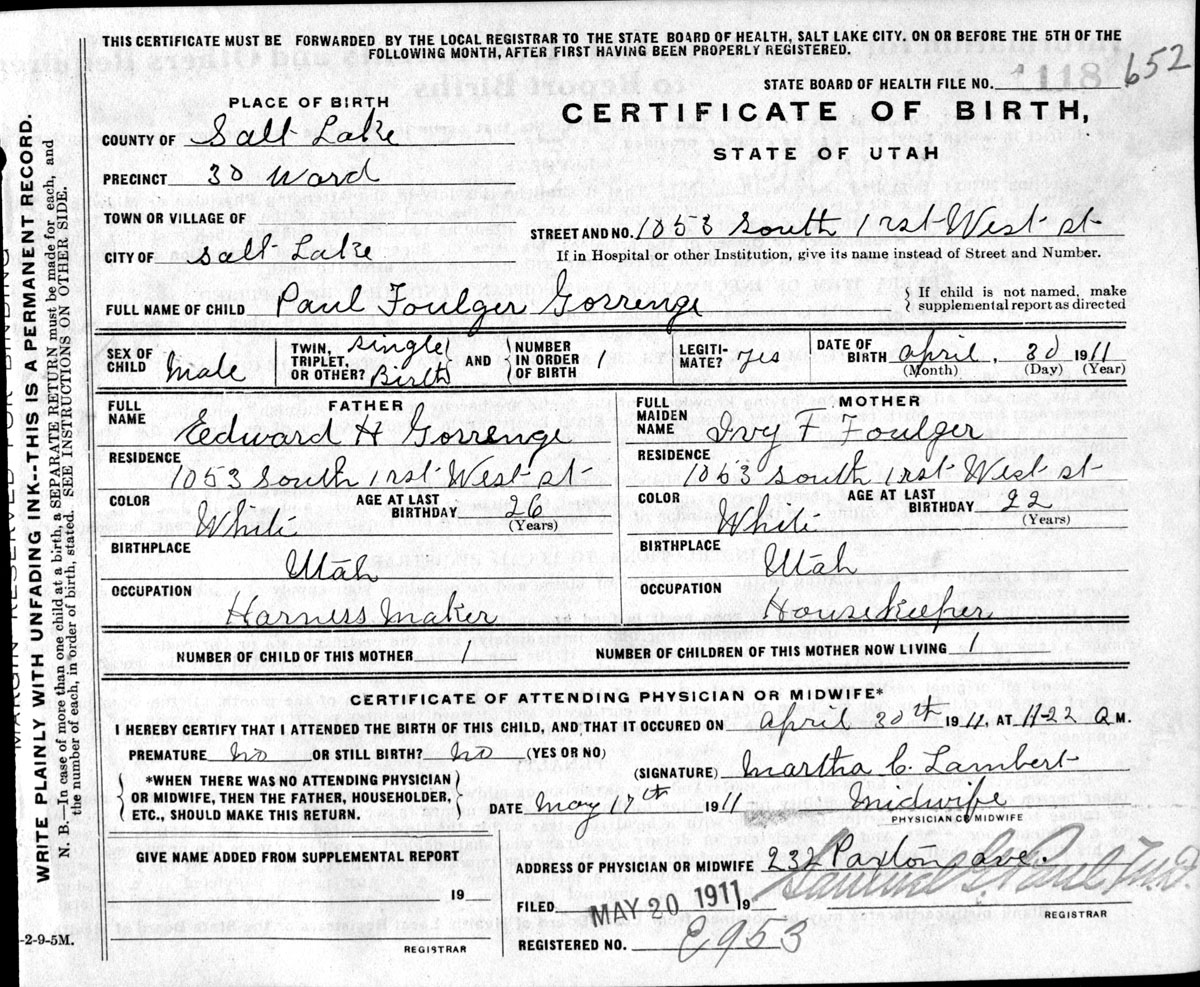 THIS CERTIFICATE MUST BE FORWARDED BY THE LOCAL REGISTRAR TO THE STATE BOARD OF HEALTH, SALT LAKE CITY. ON OR BEFORE THE 5TH OF THE
FOLLOWING MONTH, AFTER FIRST HAVING BEEN PROPERLY REGISTERED.
STATE BOARD OF HEALTH FILE NO. 1118 652
PLACE OF BIRTH
CERTIFICATE OF BIRTH,
COUNTY OF Salt Lake
STATE OF UTAH
PRECINCT 30 Ward
TOWN OR VILLAGE OF
STREET AND NO. 1053 South 1rst West st
CITY OF Salt Lake
If in Hospital or other Institution, give its name instead of Street and Number.
FULL NAME OF CHILD Paul Foulger Gorrenge
} If child is not named, make
supplemental report as directed
SEX OF CHILD Male
TWIN, TRIPLET, OR OTHER? single Birth
AND { NUMBER IN ORDER OF BIRTH 1
LEGITI-MATE? yes
DATE OF BIRTH April, 30 1911
(Month) (Day) (Year)
FATHER
FULL NAME Edward H Gorrenge
RESIDENCE
1053 South 1rst West st
COLOR White AGE AT LAST BIRTHDAY 26
(Years)
BIRTHPLACE
Utah
OCCUPATION
Harness Maker
MOTHER
FULL MAIDEN NAME Ivy F Foulger
RESIDENCE
1053 South 1rst West st
COLOR White AGE AT LAST BIRTHDAY 22
(Years)
BIRTHPLACE
Utah
OCCUPATION
Housekeeper
NUMBER OF CHILD OF THIS MOTHER 1 NUMBER OF CHILDREN OF THIS MOTHER NOW LIVING 1
CERTIFICATE OF ATTENDING PHYSICIAN OR MIDWIFE*
I HEREBY CERTIFY THAT I ATTENDED THE BIRTH OF THIS CHILD, AND THAT IT OCCURED ON April 30th 1911, AT 11-22 a M.
PREMATURE No OR STILL BIRTH? No (YES OR NO)
{ *WHEN THERE WAS NO ATTENDING PHYSICIAN
OR MIDWIFE, THEN THE FATHER, HOUSEHOLDER,
ETC., SHOULD MAKE THIS RETURN. }
(SIGNATURE) Martha C. Lambert
DATE May 1911 Midwife
PHYSICIAN OR MIDWIFE
GIVE NAME ADDED FROM SUPPLEMENTAL REPORT
19
REGISTRAR
ADDRESS OF PHYSICIAN OR MIDWIFE 232 Paxton ave.
FILED MAY 20 1911 19 Samuel G. Paul, M.D.
REGISTRAR
REGISTERED NO. E953
-2-9-5M.
MARGIN RESERVED FOR BINDING
WRITE PLAINLY WITH UNFADING INK--THIS IS A PERMANENT RECORD.
N. B.—In case of more than one child at a birth, a SEPARATE RETURN must be made for each, and
the number of each, in order of birth, stated. SEE INSTRUCTIONS ON OTHER SIDE.